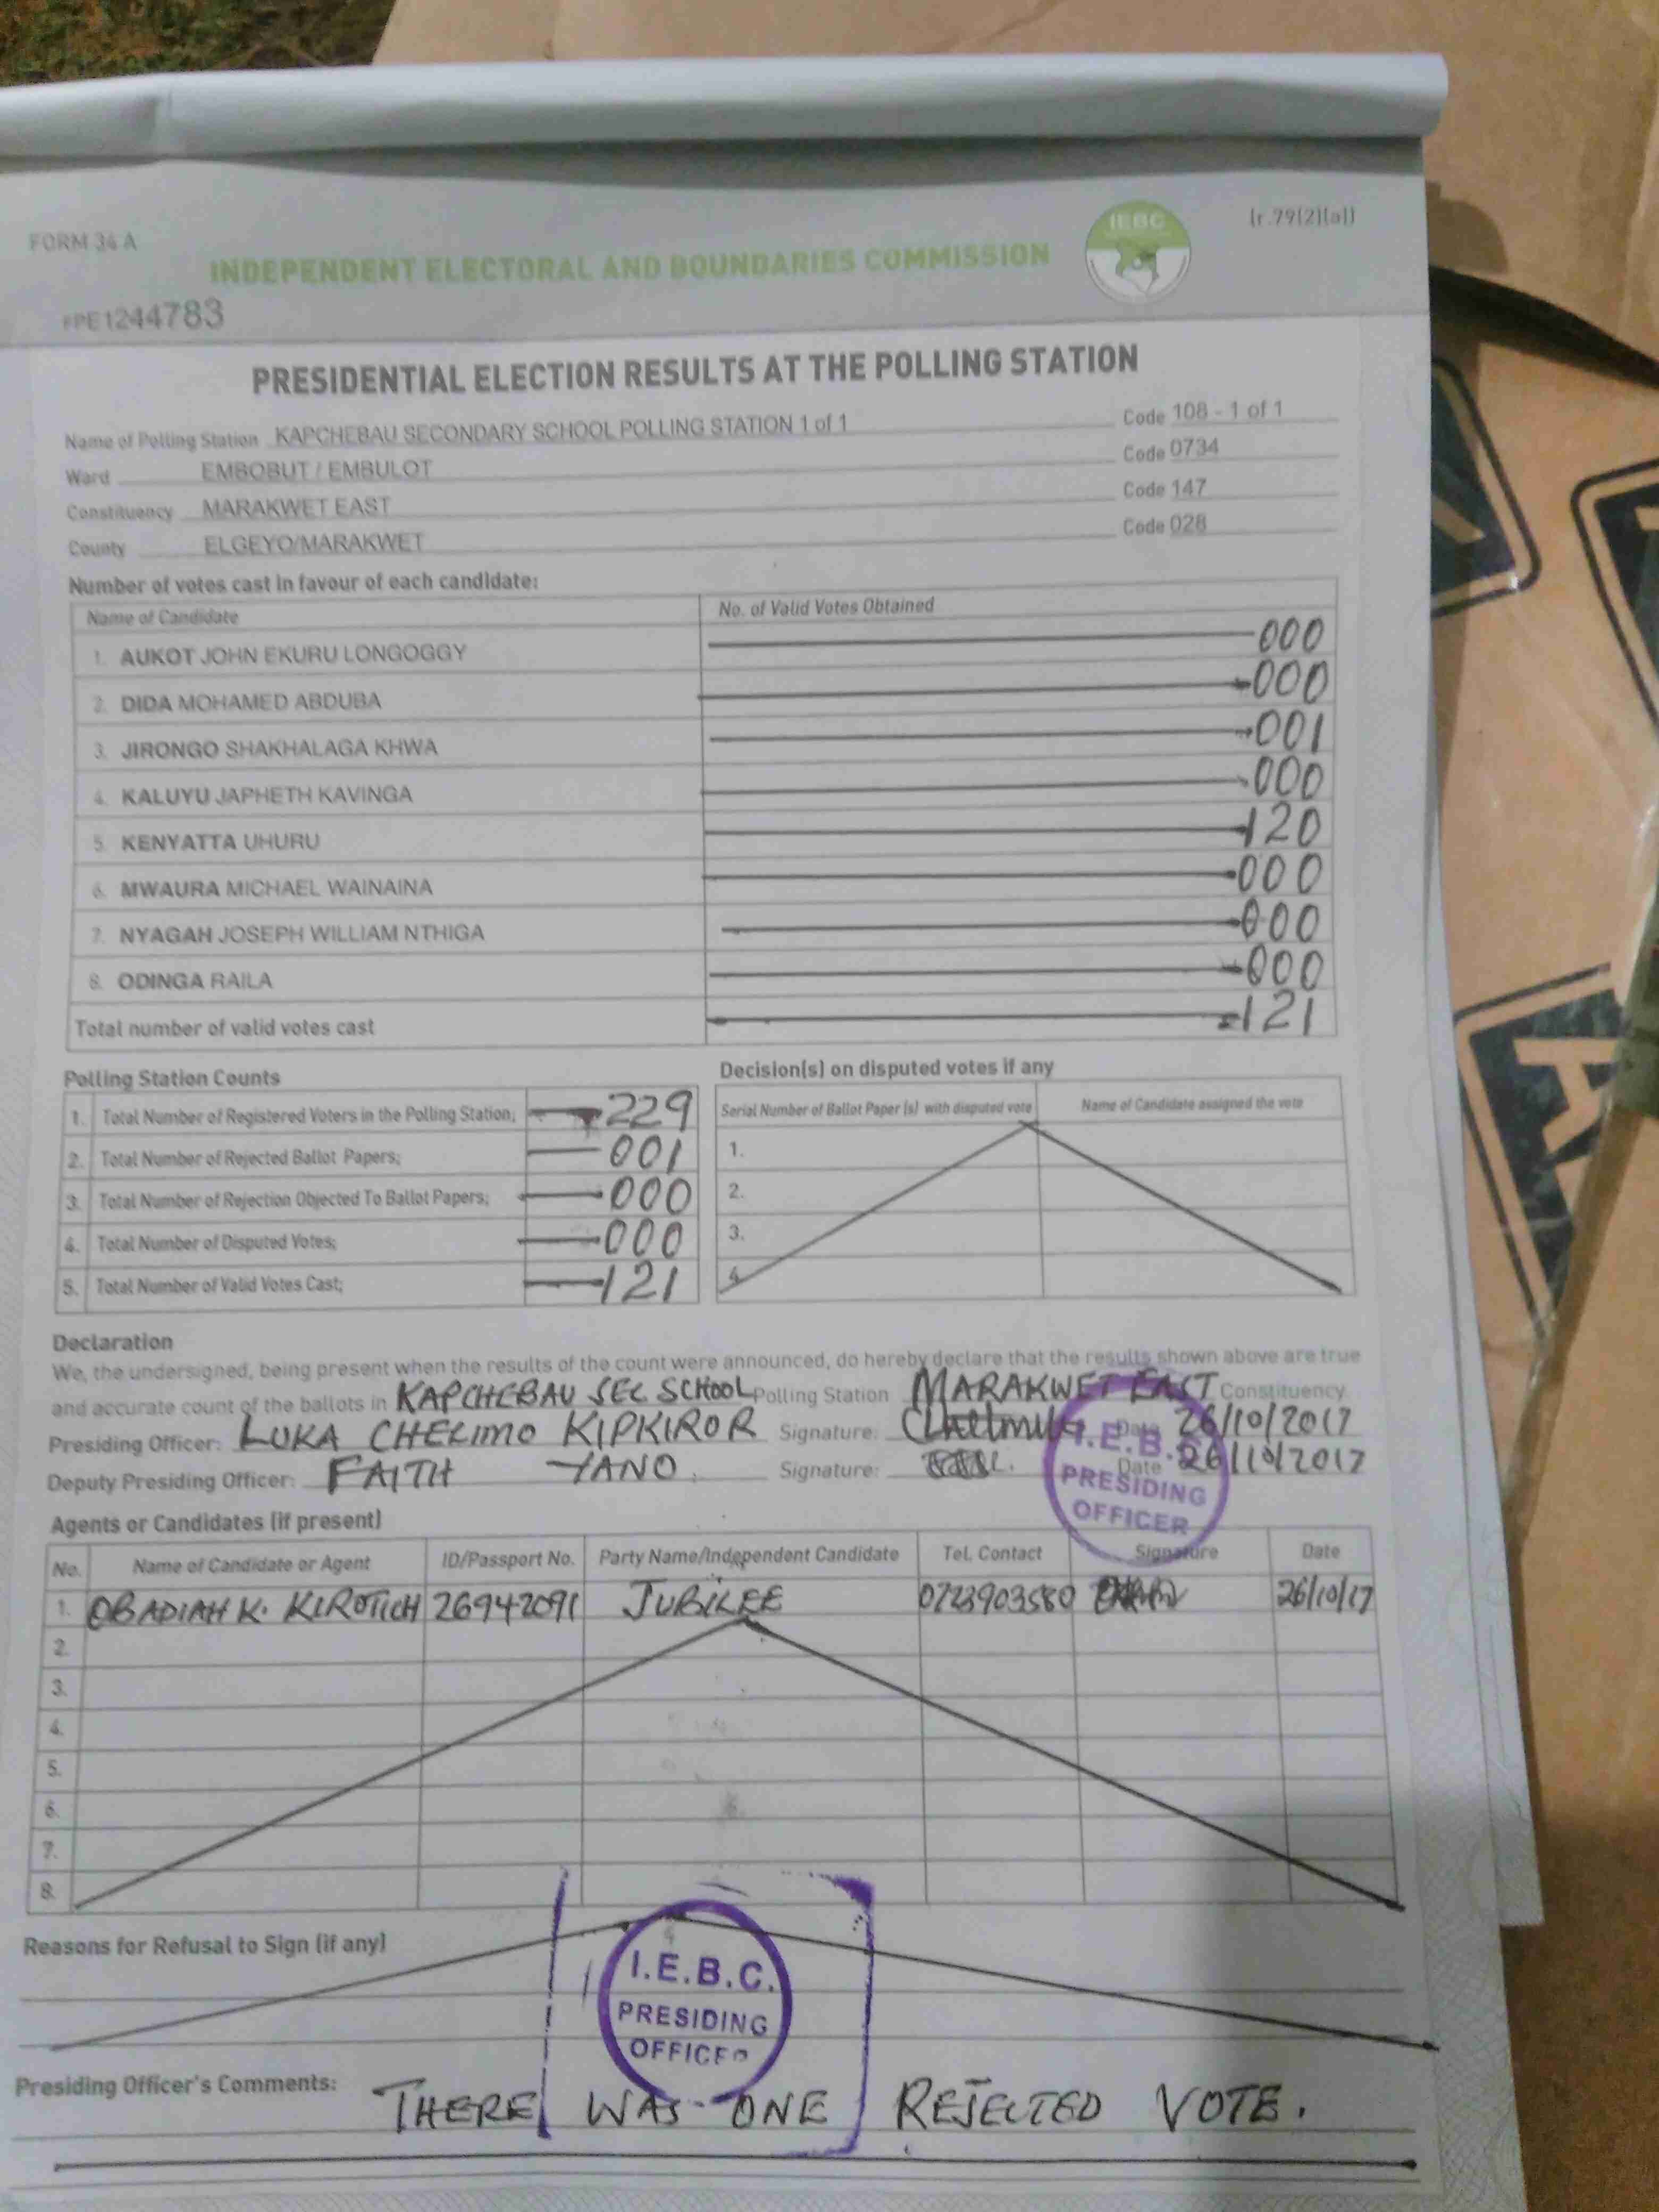 FORM 34 A
(r.79(2)(a))
IEBC
INDEPENDENT ELECTORAL AND BOUNDARIES COMMISSION
FPE1244783
PRESIDENTIAL ELECTION RESULTS AT THE POLLING STATION
Name of Polling Station KAPCHEBAU SECONDARY SCHOOL POLLING STATION 1 of 1 Code 108 - 1 of 1
Ward EMBOBUT / EMBULOT Code 0734
Constituency MARAKWET EAST Code 147
County ELGEYO/MARAKWET Code 028
Number of votes cast in favour of each candidate:
Name of Candidate No. of Valid Votes Obtained
1. AUKOT JOHN EKURU LONGOGGY 000
2. DIDA MOHAMED ABDUBA 000
3. JIRONGO SHAKHALAGA KHWA 001
4. KALUYU JAPHETH KAVINGA 000
5. KENYATTA UHURU 120
6. MWAURA MICHAEL WAINAINA 000
7. NYAGAH JOSEPH WILLIAM NTHIGA 000
8. ODINGA RAILA 000
Total number of valid votes cast 121
Polling Station Counts
1. Total Number of Registered Voters in the Polling Station; 229
2. Total Number of Rejected Ballot Papers; 001
3. Total Number of Rejection Objected To Ballot Papers; 000
4. Total Number of Disputed Votes; 000
5. Total Number of Valid Votes Cast; 121
Decision(s) on disputed votes if any
Serial Number of Ballot Paper (s) with disputed vote Name of Candidate assigned the vote
1.
2.
3.
4.
Declaration
We, the undersigned, being present when the results of the count were announced, do hereby declare that the results shown above are true
and accurate count of the ballots in KAPCHEBAU SEC. SCHOOL Polling Station MARAKWET EAST Constituency
Presiding Officer: LUKA CHELIMO KIPKIROR Signature: Date 26/10/2017
Deputy Presiding Officer: FAITH YANO Signature: Date 26/10/2017
I.E.B.C.
PRESIDING
OFFICER
Agents or Candidates (if present)
No. Name of Candidate or Agent ID/Passport No. Party Name/Independent Candidate Tel. Contact Signature Date
1. OBADIAH K. KIROTICH 26942091 JUBILEE 0723903580 26/10/17
2.
3.
4.
5.
6.
7.
8.
Reasons for Refusal to Sign (if any)
I.E.B.C.
PRESIDING
OFFICER
Presiding Officer's Comments: THERE WAS ONE REJECTED VOTE.